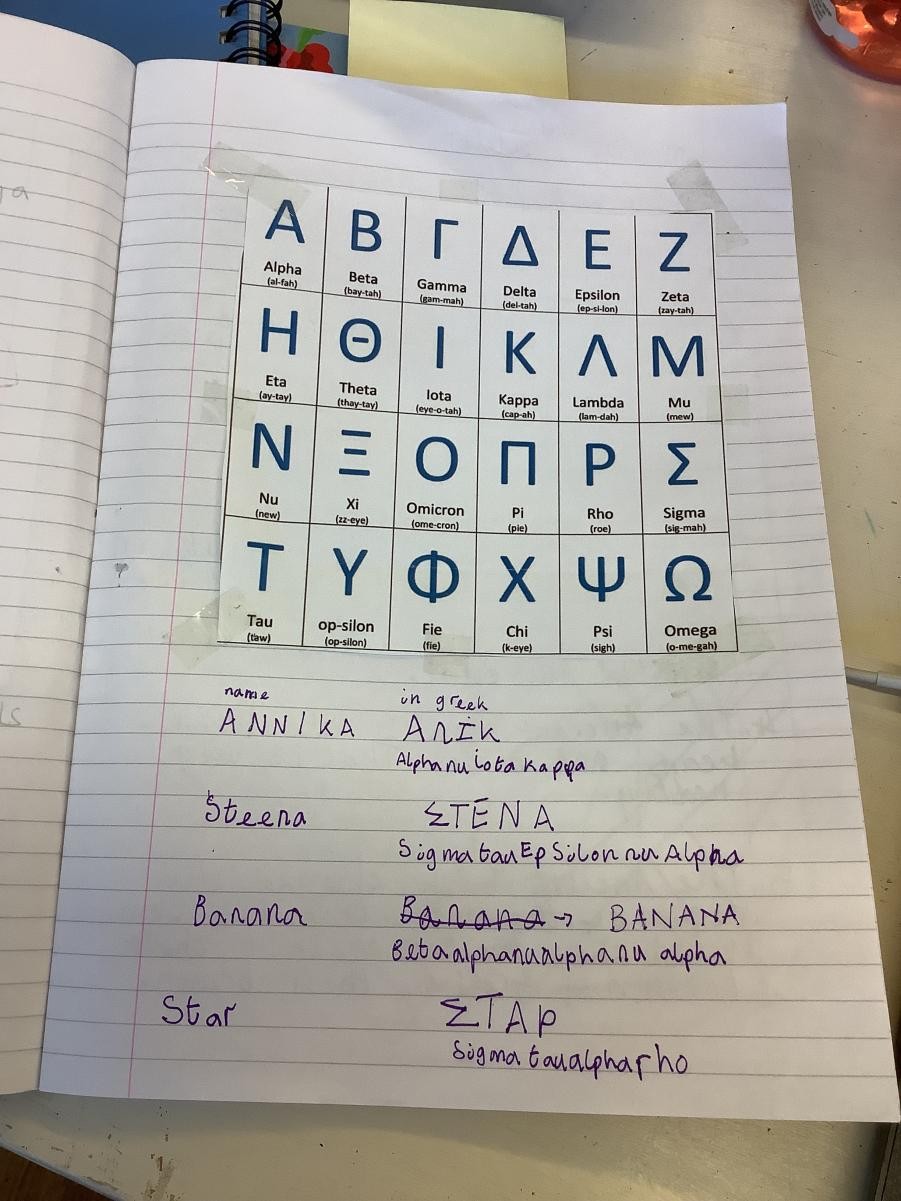 Α Β Γ Δ Ε Ζ
Alpha Beta Gamma Delta Epsilon Zeta
(al-fah) (bay-tah) (gam-mah) (del-tah) (ep-si-lon) (zay-tah)
Η Θ Ι Κ Λ Μ
Eta Theta Iota Kappa Lambda Mu
(ay-tay) (thay-tay) (eye-o-tah) (cap-ah) (lam-dah) (mew)
Ν Ξ Ο Π Ρ Σ
Nu Xi Omicron Pi Rho Sigma
(new) (zz-eye) (ome-cron) (pie) (roe) (sig-mah)
Τ Υ Φ Χ Ψ Ω
Tau op-silon Fie Chi Psi Omega
(taw) (op-silon) (fie) (k-eye) (sigh) (o-me-gah)
name in greek
ANNIKA Anik
Alphanu iota kappa
Steena ΣTĒNA
Sigma tau EpSilon nu Alpha
Banana Banana → BANANA
Beta alphanualphanu alpha
Star ΣTAP
Sigma taualpharho